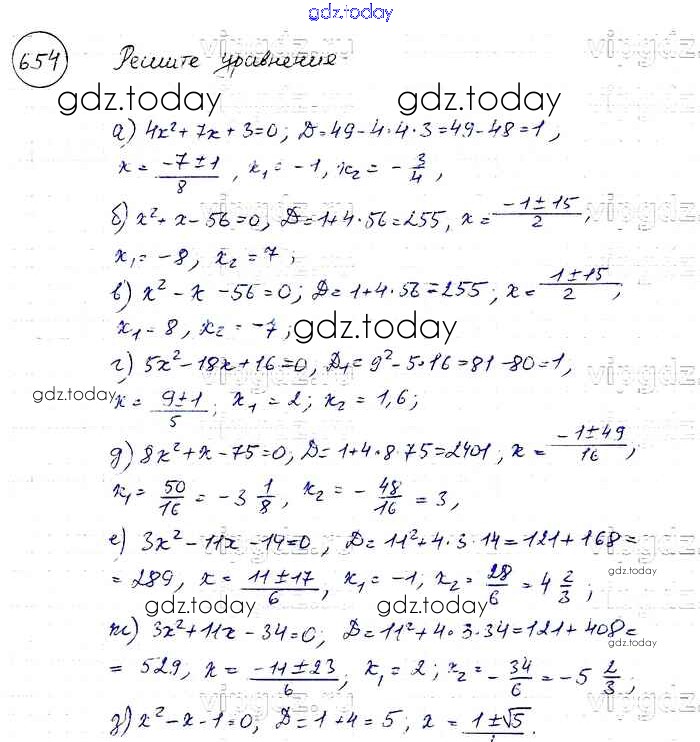 gdz.today
654 Решите уравнения
gdz.today gdz.today
а) 4x²+7x+3=0; D=49-4·4·3=49-48=1,
x = (-7±1)/8, x₁=-1, x₂=-3/4,
б) x²+x-56=0, D=1+4·56=255, x=(-1±15)/2,
x₁=-8, x₂=7;
в) x²-x-56=0; D=1+4·56=255; x=(1±15)/2;
x₁=8, x₂=-7;
gdz.today
г) 5x²-18x+16=0, D₁=9²-5·16=81-80=1,
gdz.today
x=(9±1)/5; x₁=2; x₂=1,6;
д) 8x²+x-75=0; D=1+4·8·75=2401, x=(-1±49)/16,
x₁=50/16=-3 1/8, x₂=-48/16=3,
е) 3x²-11x-14=0, D=11²+4·3·14=121+168=
gdz.today
=289, x=(11±17)/6, x₁=-1, x₂=28/6=4 2/3;
gdz.today gdz.today
ж) 3x²+11x-34=0; D=11²+4·3·34=121+408=
=529, x=(-11±23)/6; x₁=2; x₂=-34/6=-5 2/3;
з) x²-x-1=0, D=1+4=5, x=1±√5